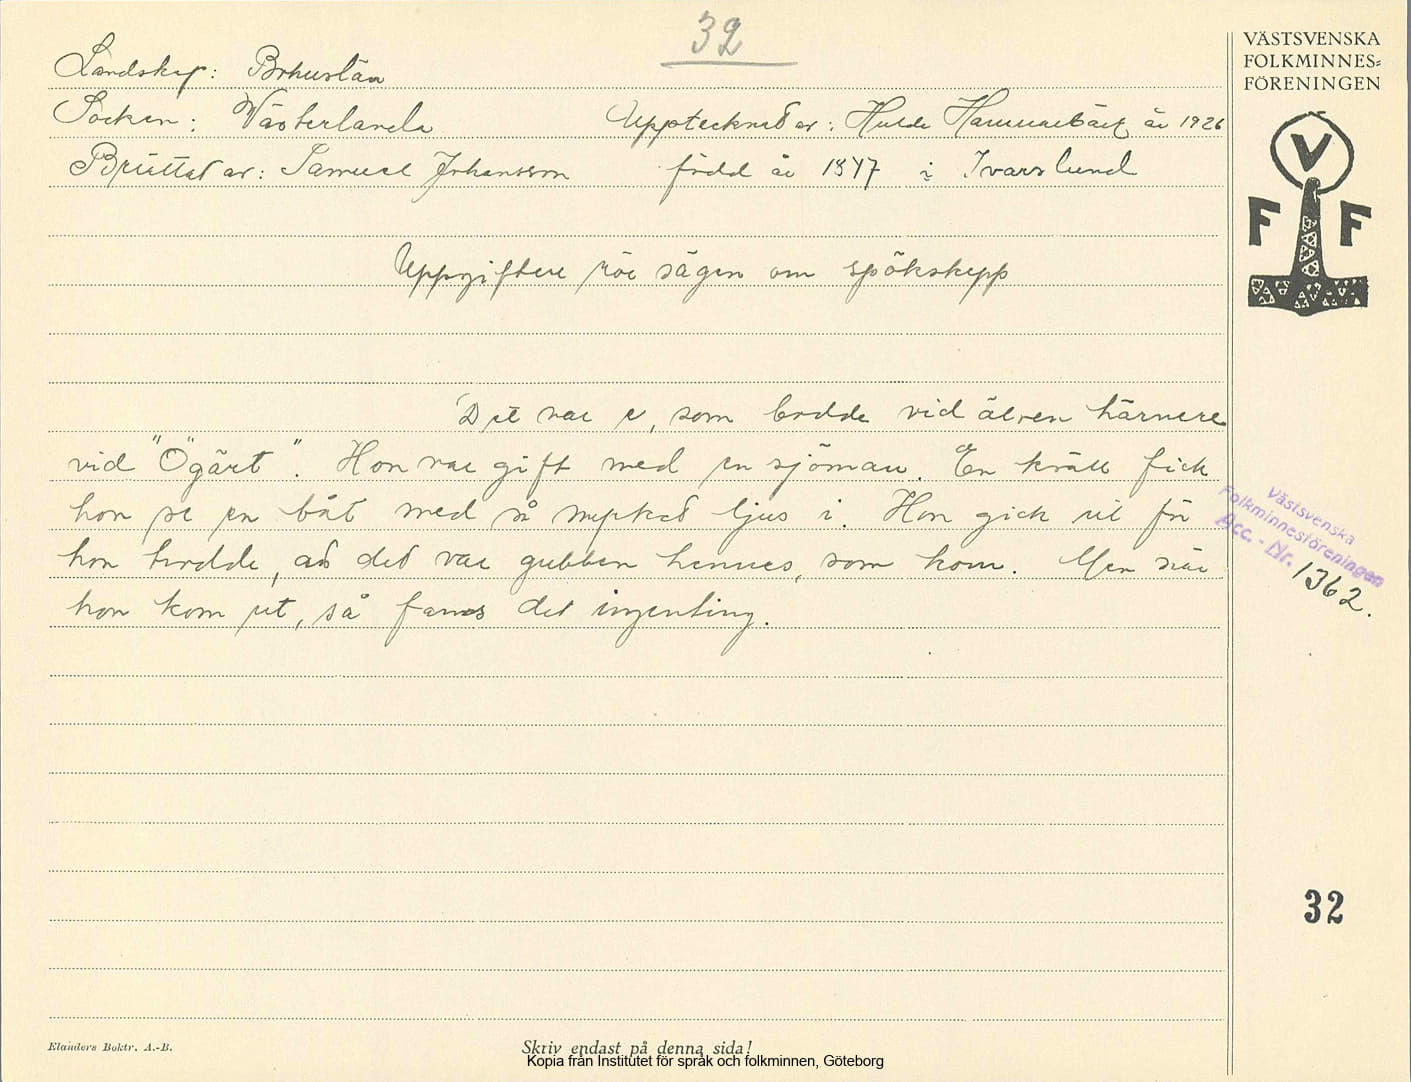 32
Landskap: Bohuslän
Socken: Västerlanda Upptecknad av: Hulda Hammarbäck år 1926
Berättat av: Samuel Johansson född år 1847 i Ivarslund
Uppgifter rör sägen om spökskepp
Det var e, som bodde vid älven härnere
vid "Ögärt". Hon var gift med en sjöman. En kväll fick
hon se en båt med så mycket ljus i. Hon gick ut för
hon trodde, att det var gubben hennes, som kom. Men när
hon kom ut, så fanns det ingenting.
VÄSTSVENSKA
FOLKMINNES=
FÖRENINGEN
V
F F
Västsvenska
Folkminnesföreningen
Acc. - Nr. 1362.
32
Elanders Boktr. A.-B.
Skriv endast på denna sida!
Kopia från Institutet för språk och folkminnen, Göteborg